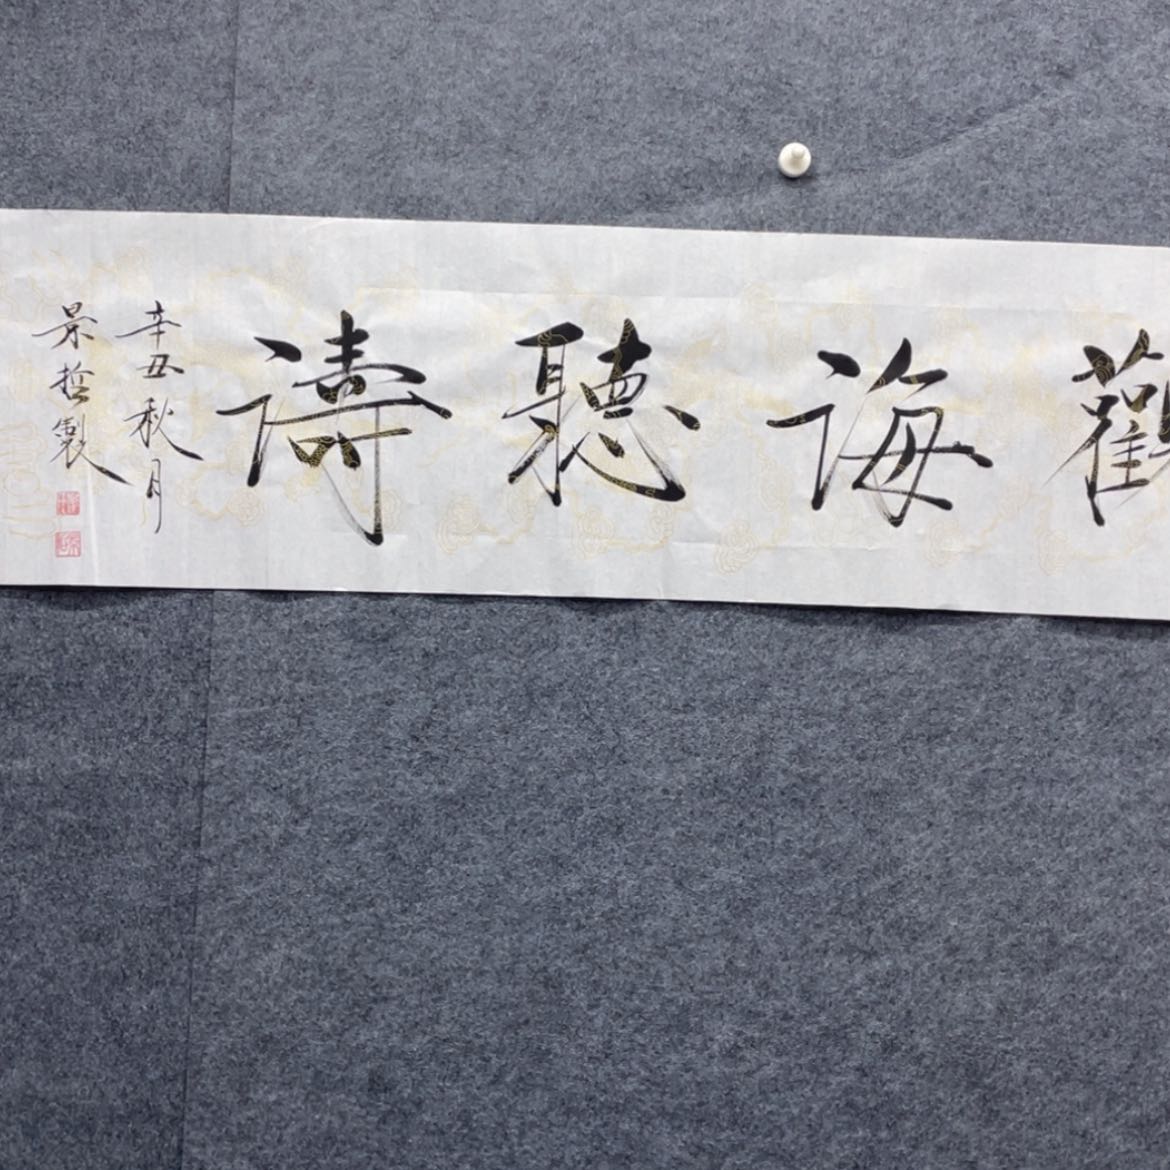 觀海聽濤
辛丑秋月
景哲製